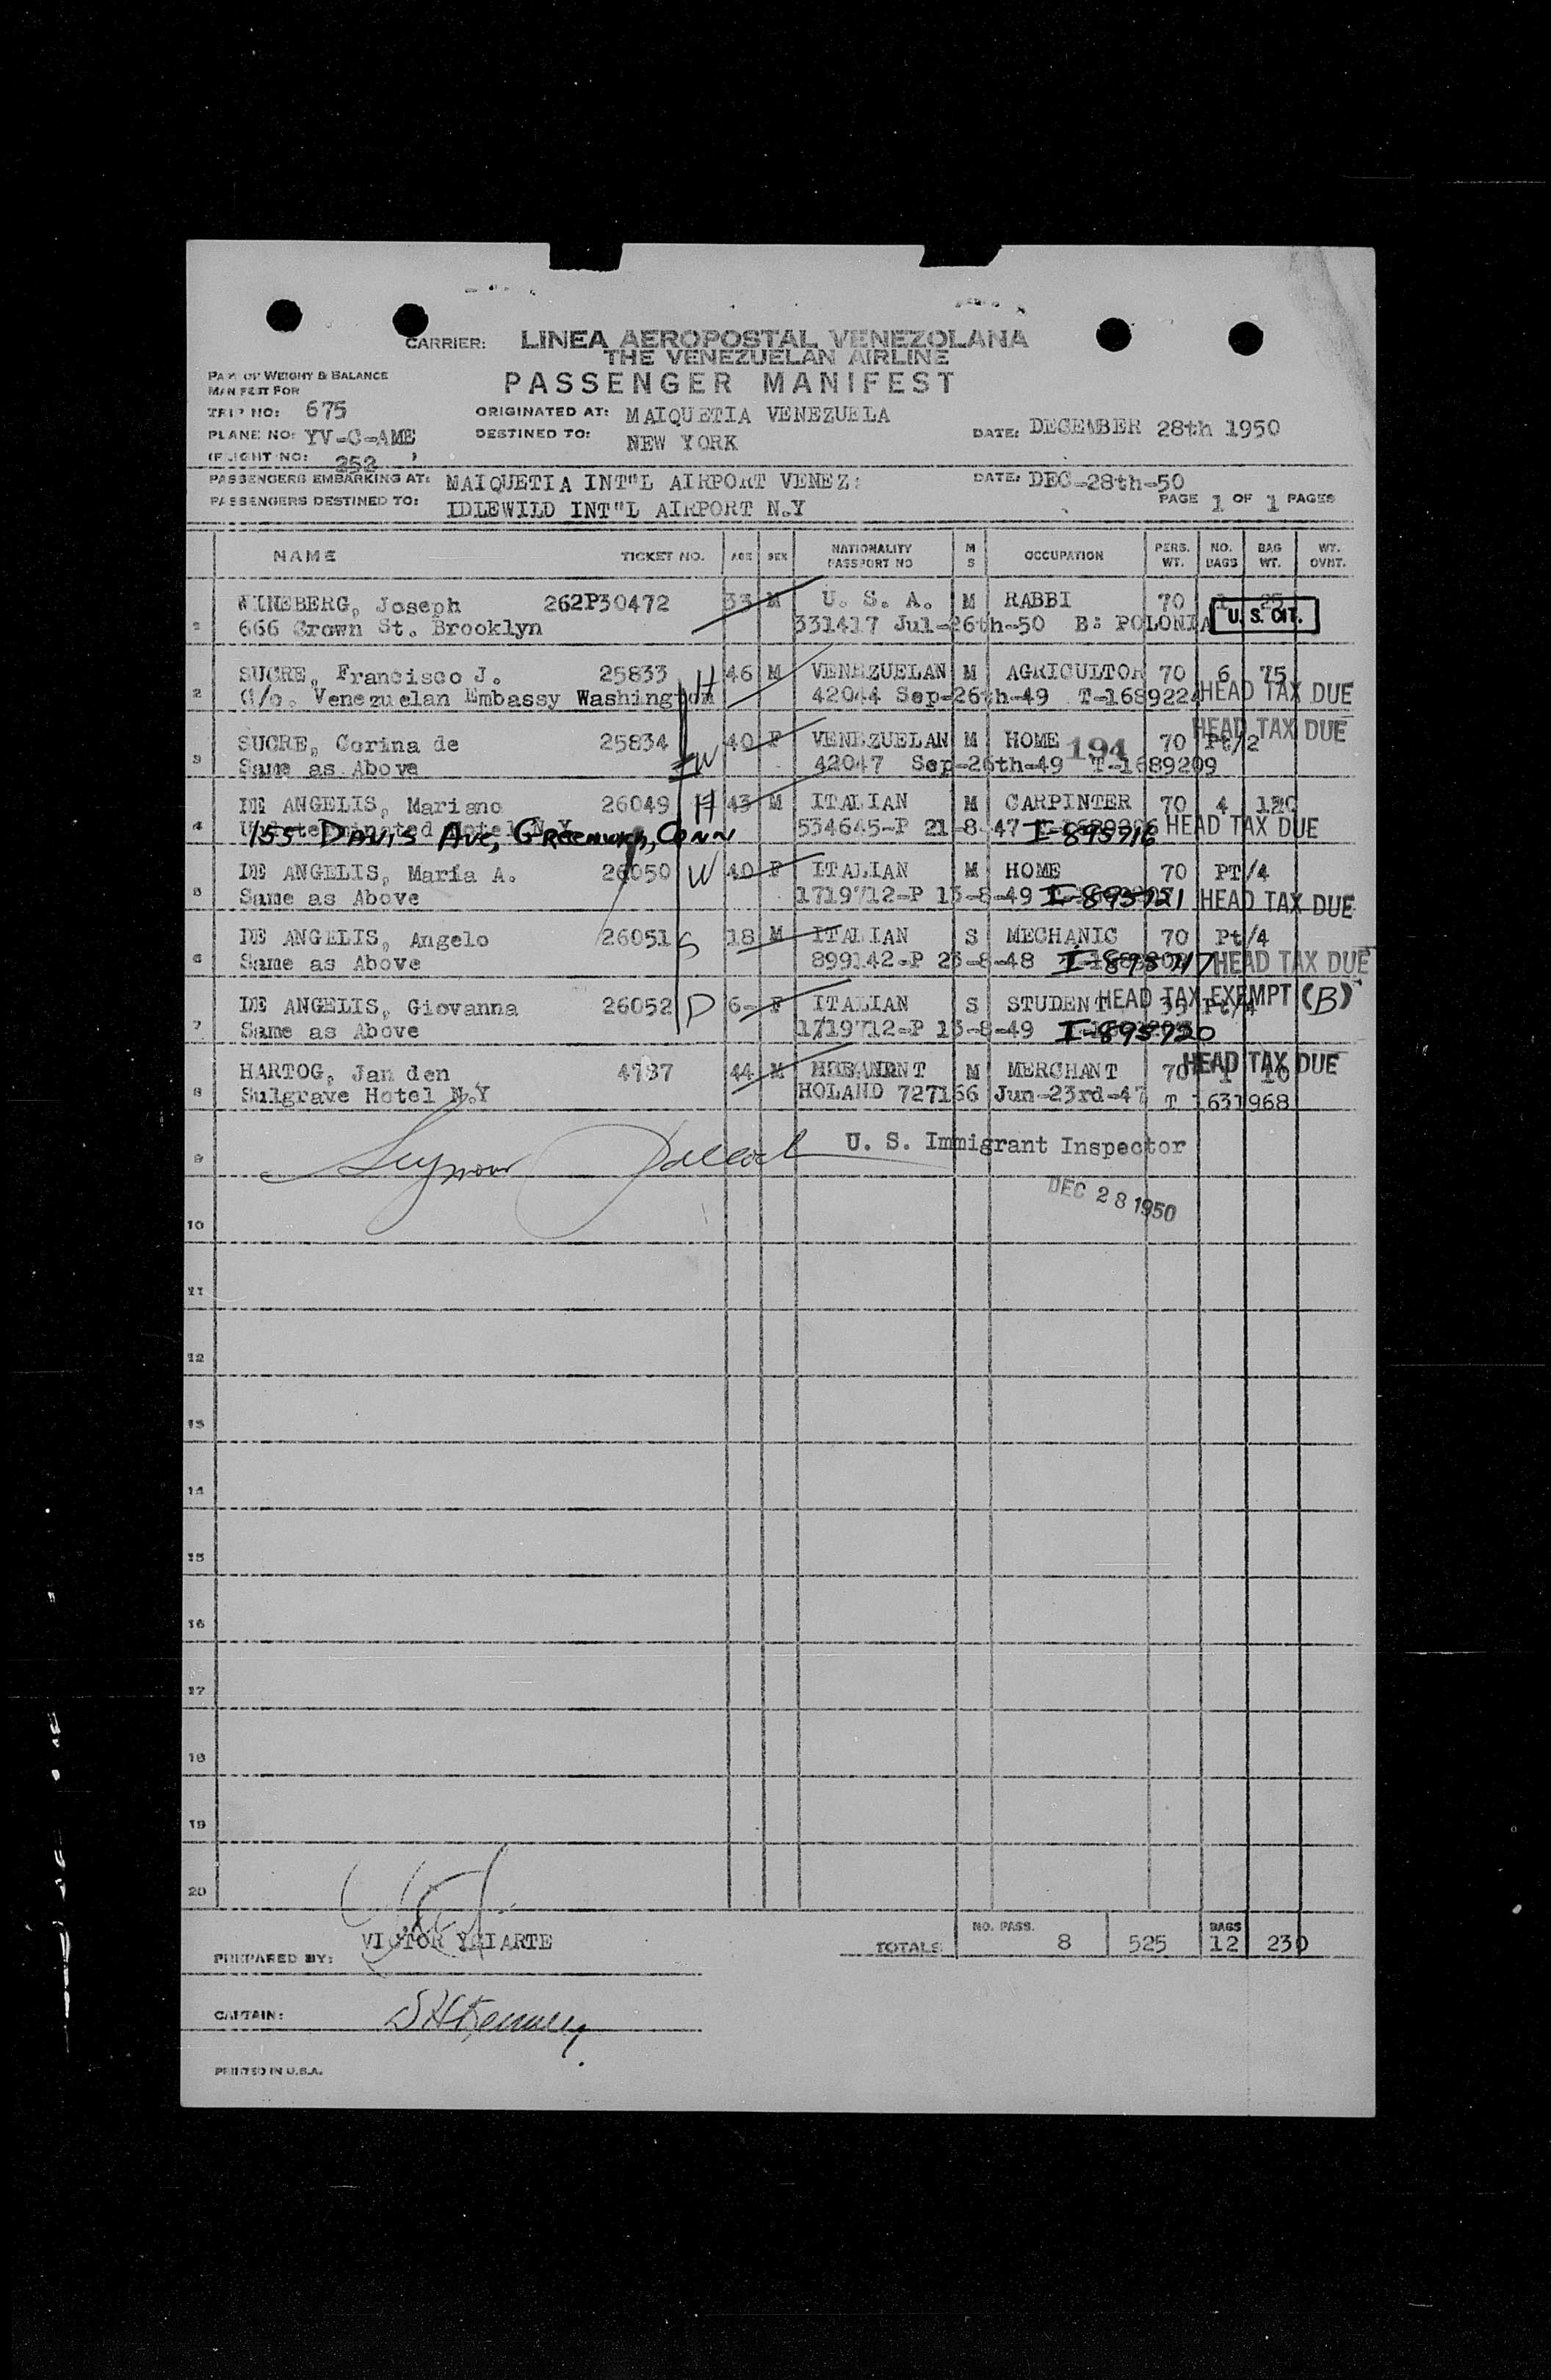 CARRIER: LINEA AEROPOSTAL VENEZOLANA
THE VENEZUELAN AIRLINE
PASSENGER MANIFEST
PART OF WEIGHT & BALANCE
MANIFEST FOR
TRIP NO: 675
ORIGINATED AT: MAIQUETIA VENEZUELA
PLANE NO: YV-C-AME
DESTINED TO: NEW YORK
DATE: DECEMBER 28th 1950
(FLIGHT NO: 252 )
PASSENGERS EMBARKING AT: MAIQUETIA INT"L AIRPORT VENEZ: DATE: DEC-28th-50
PASSENGERS DESTINED TO: IDLEWILD INT"L AIRPORT N.Y PAGE 1 OF 1 PAGES
NAME TICKET NO. AGE SEX NATIONALITY PASSPORT NO M S OCCUPATION PERS. WT. NO. BAGS BAG WT. WT. OVHT.
WINEBERG, Joseph 262P30472 33 M U. S. A. M RABBI 70 1 25
1 666 Crown St. Brooklyn 331417 Jul-26th-50 B: POLONIA U. S. CIT.
SUCRE, Francisco J. 25833 H 46 M VENEZUELAN M AGRICULTOR 70 6 75
2 C/o. Venezuelan Embassy Washington 42044 Sep-26th-49 T-1689224 HEAD TAX DUE
HEAD TAX DUE
SUCRE, Corina de 25834 W 40 F VENEZUELAN M HOME 194 70 Pt/2
3 Same as Above 42047 Sep-26th-49 T-1689209
DE ANGELIS, Mariano 26049 H 43 M ITALIAN M CARPINTER 70 4 120
4 155 DAVIS AVE, GREENWICH, CONN 534645-P 21-8-47 I-895916 HEAD TAX DUE
DE ANGELIS, Maria A. 26050 W 40 F ITALIAN M HOME 70 PT/4
5 Same as Above 1719712-P 13-8-49 I-895921 HEAD TAX DUE
DE ANGELIS, Angelo 26051 S 18 M ITALIAN S MECHANIC 70 Pt/4
6 Same as Above 899142-P 23-8-48 I-895917 HEAD TAX DUE
DE ANGELIS, Giovanna 26052 D 6- F ITALIAN S STUDENT 35 Pt/4 HEAD TAX EXEMPT (B)
7 Same as Above 1719712-P 13-8-49 I-895920
HEAD TAX DUE
HARTOG, Jan den 4787 44 M M MERCHANT 70 1 10
8 Sulgrave Hotel N.Y HOLAND 727166 Jun-23rd-47 T 1631968
9 Seymour U. S. Immigrant Inspector
DEC 28 1950
10
11
12
13
14
15
16
17
18
19
20
PREPARED BY: VICTOR YCIARTE
TOTALS NO. PASS. 8 525 BAGS 12 230
CAPTAIN:
PRINTED IN U.S.A.